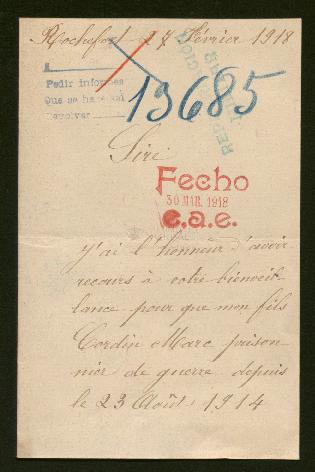 Rochefort 27 Février 1918
A
Pedir informes
Que se hace así
Devolver
13685
Sire
Fecho
30 MAR. 1918
e.a.e.
J'ai l'honneur d'avoir
recours à votre bienveil-
lance pour que mon fils
Cordin Marc prison-
nier de guerre depuis
le 23 Août 1914